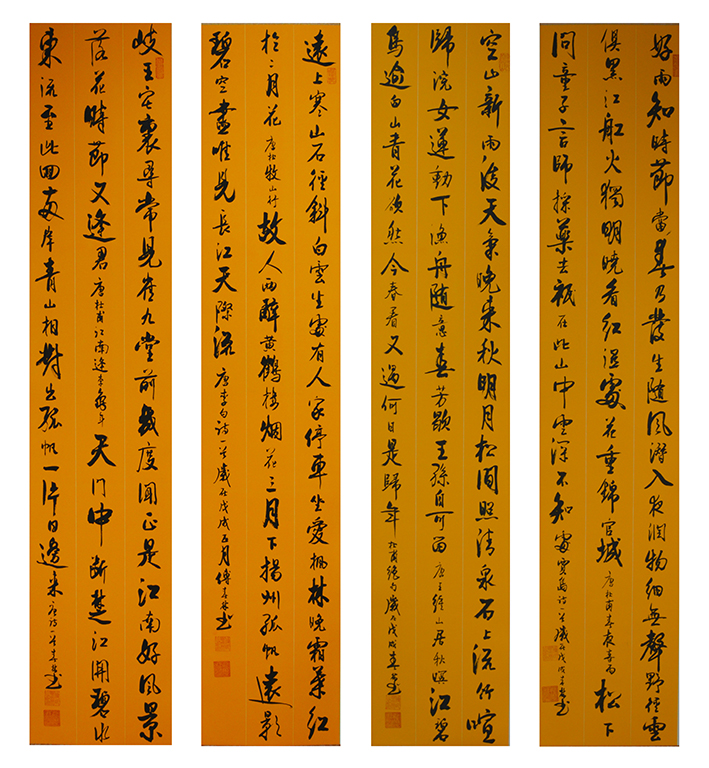 好雨知時節當春乃發生隨風潛入夜潤物細無聲野徑雲
俱黑江船火獨明曉看紅濕處花重錦官城唐杜甫春夜喜雨松下
問童子言師採藥去祇在此山中雲深不知處賈島詩一首歲在戊戌書
空山新雨後天氣晚來秋明月松間照清泉石上流竹喧
歸浣女蓮動下漁舟隨意春芳歇王孫自可留唐王維山居秋暝江碧
鳥逾白山青花欲然今春看又過何日是歸年杜甫絕句歲在戊戌書
遠上寒山石徑斜白雲生處有人家停車坐愛楓林晚霜葉紅
於二月花唐杜牧山行故人西辭黃鶴樓烟花三月下揚州孤帆遠影
碧空盡唯見長江天際流唐李白詩一首歲在戊戌五月傅書
岐王宅裏尋常見崔九堂前幾度聞正是江南好風景
落花時節又逢君唐杜甫江南逢李龜年天門中斷楚江開碧水
東流至此回兩岸青山相對出孤帆一片日邊來唐詩一首書